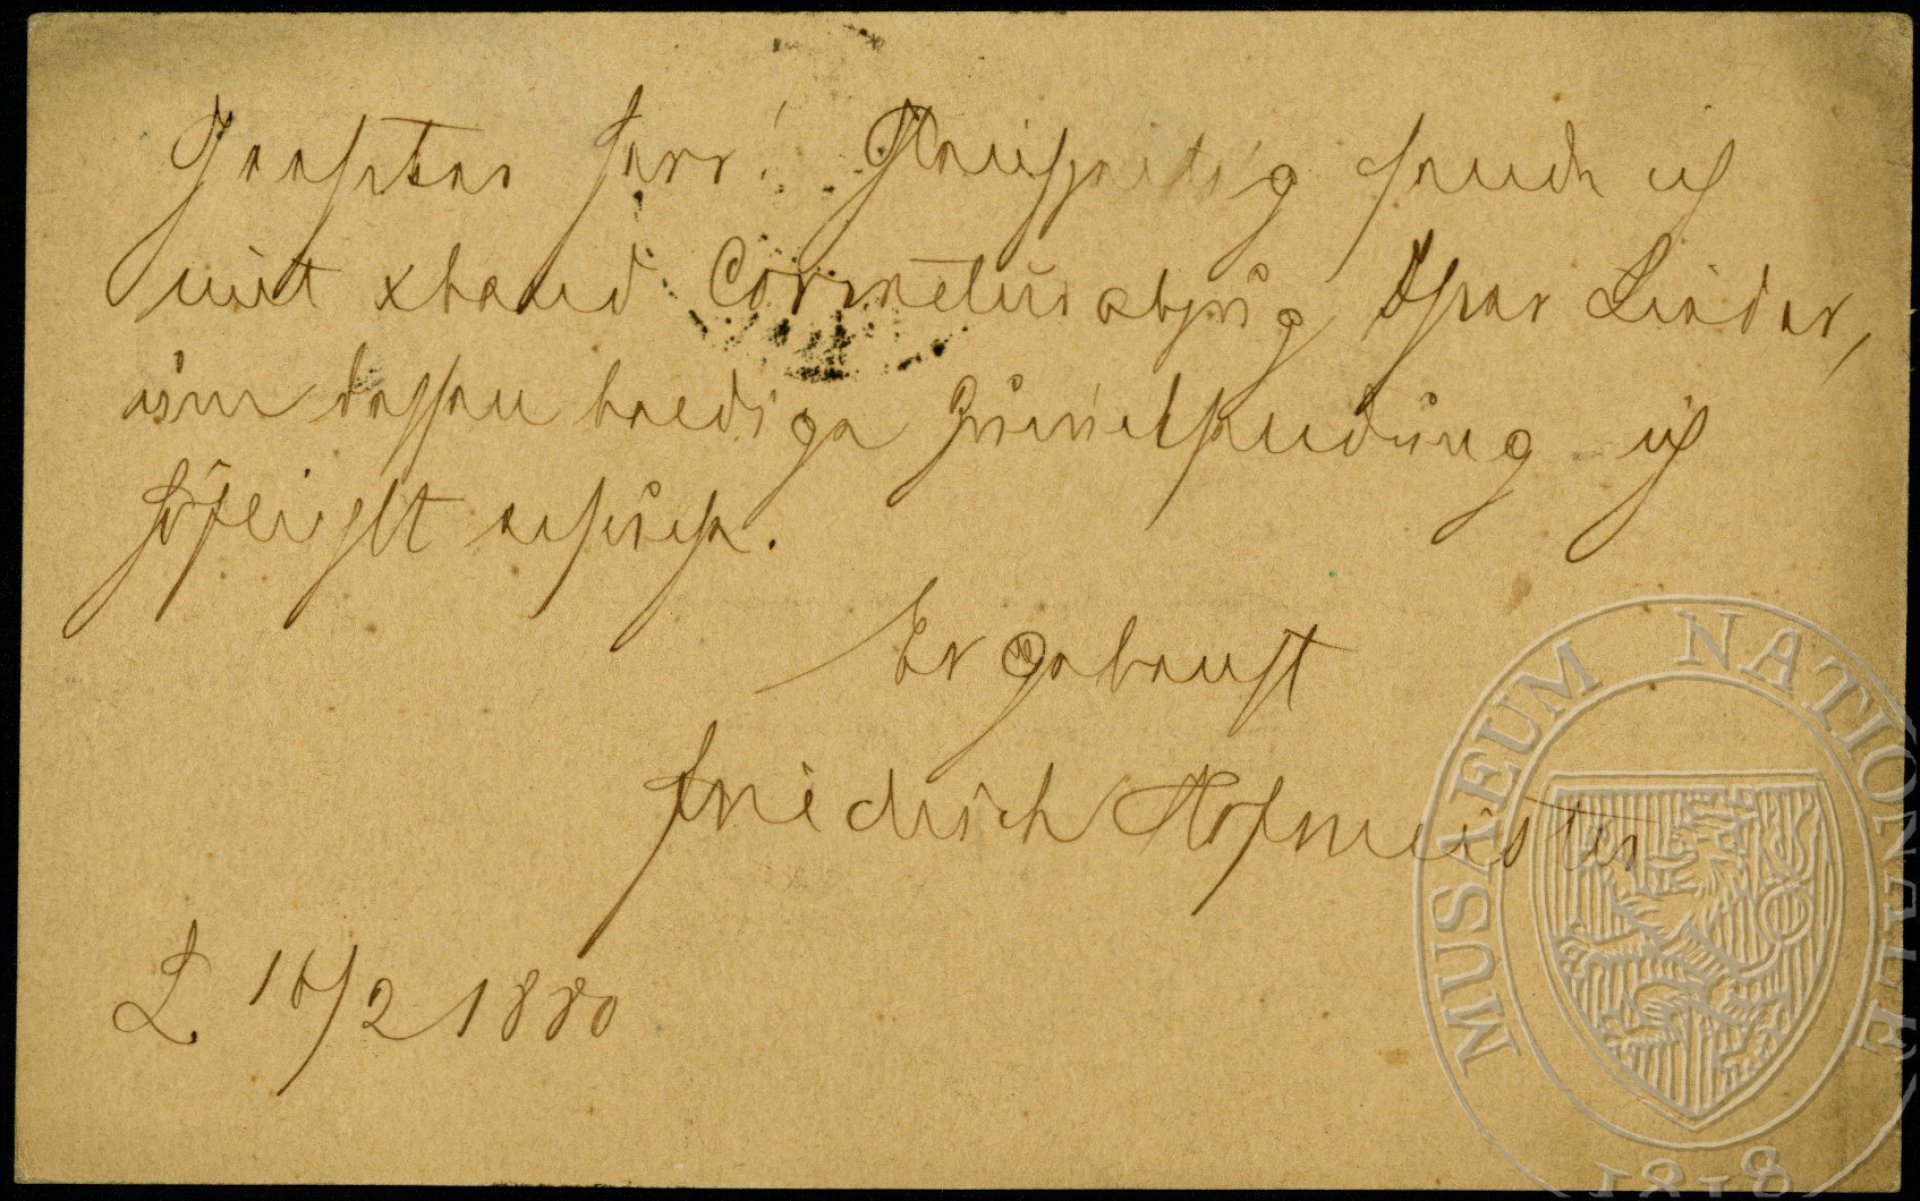 Geehrter Herr! Gleichzeitig sende ich
mit xband Correctur abzug Ihrer Lieder,
um dessen baldige Zurücksendung ich
höflichst ersuche.
Ergebenst
Friedrich Hofmeister
L 16/2 1880
MUSAEUM NATIONALE
1818